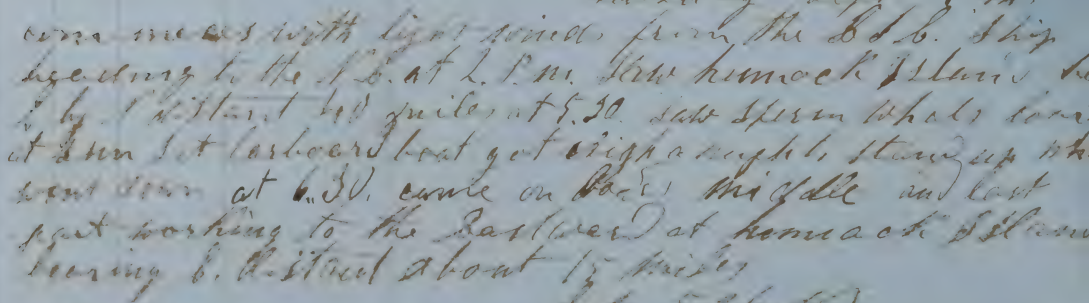 with light winds from the E S E. Ship
heading to the N E. at 2. P.m. Saw humock Island
by N distant 40 miles at 5.30. saw sperm whale
at Sun Set larboard boat got nigh anughh to stand up
went down at 6.30. came on board middle and last
part working to the Eastward at homack Island
bearing E. distant about 15 miles